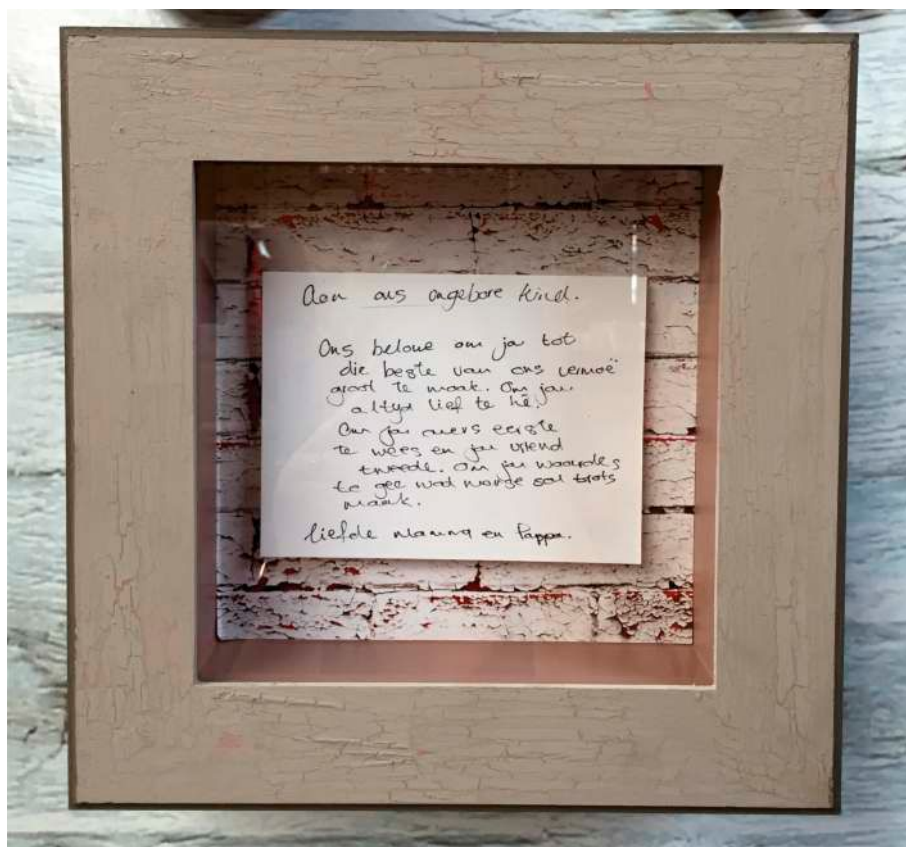 Aan ons ongebore kind.
Ons belowe om jou tot
die beste van ons vermoë
groot te maak. Om jou
altyd lief te hê.
Om jou ouers eerste
te wees en jou vriend
tweede. Om jou waardes
te gee wat jou sal trots
maak.
liefde Mamma en Pappa.